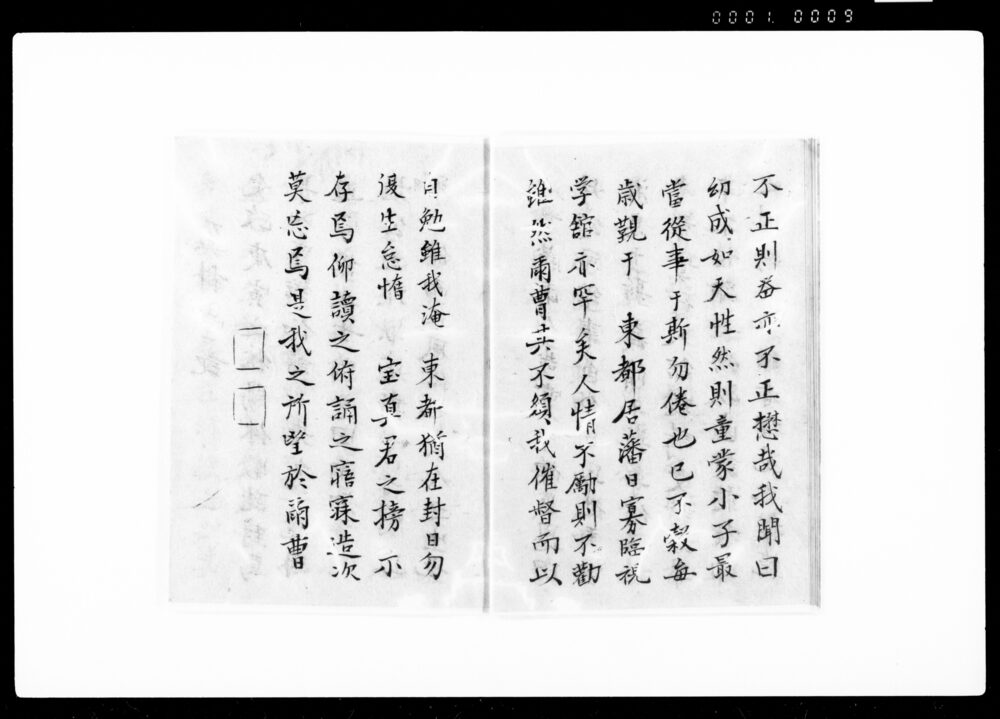 0001. 0009
不正則啓亦不正懋哉我聞曰
幼成如天性然則童蒙小子最
當從事于斯勿倦也已不穀毎
歳覲于 東都居藩日寡臨視
学館亦罕矣人情不勵則不勸
雖然爾曹共不須我催督而以
自勉雖我淹 東都猶在封日勿
復生怠惰 宝真君之榜示
存焉仰讀之俯誦之寤寐造次
莫忘焉是我之所望於爾曹